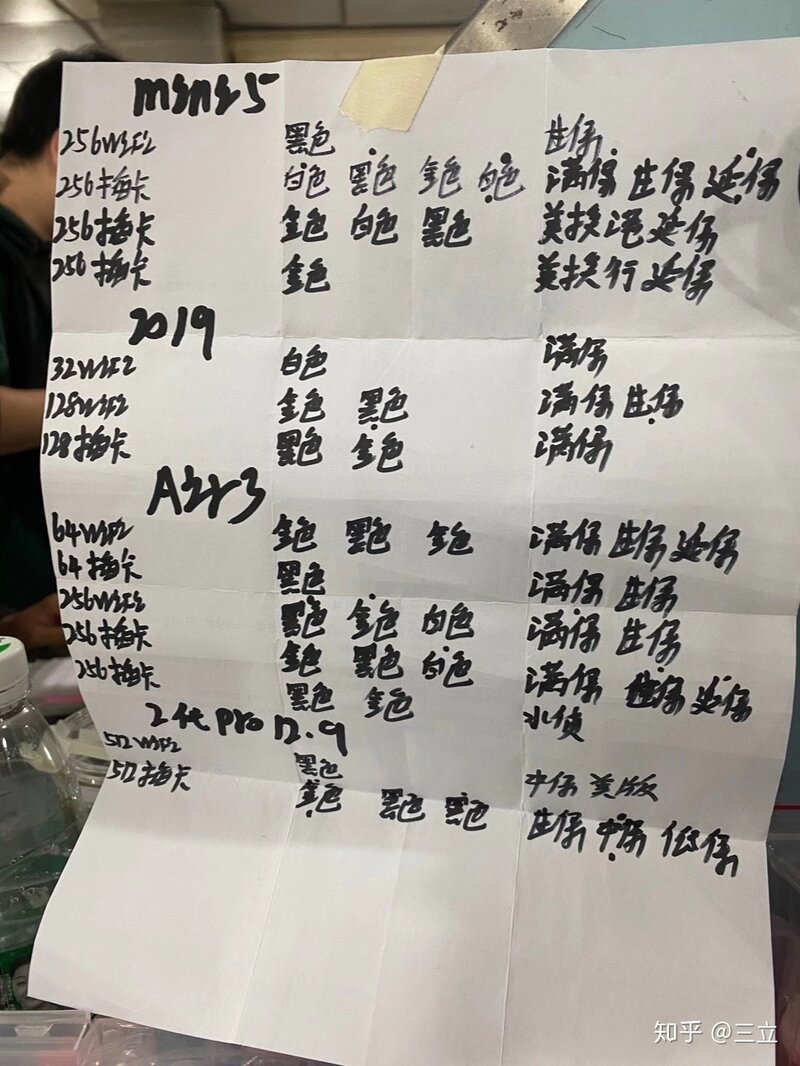 mini5
256wifi 黑色 生保
256插卡 白色 黑色 金色 白色 满保 生保 延保
256插卡 金色 白色 黑色 美换港 延保
256插卡 金色 美换行 延保
2019
32wifi 白色 满保
128wifi 金色 黑色 满保 生保
128插卡 黑色 金色 满保
Air3
64wifi 金色 黑色 金色 满保 生保 延保
64插卡 黑色 满保 生保
256wifi 黑色 金色 白色 满保 生保
256插卡 金色 黑色 白色 满保 生保 延保
256插卡 黑色 金色 水侦
2代pro 12.9
512wifi 黑色 中保 美版
512插卡 金色 黑色 黑色 生保 中保 低保
知乎 @三立